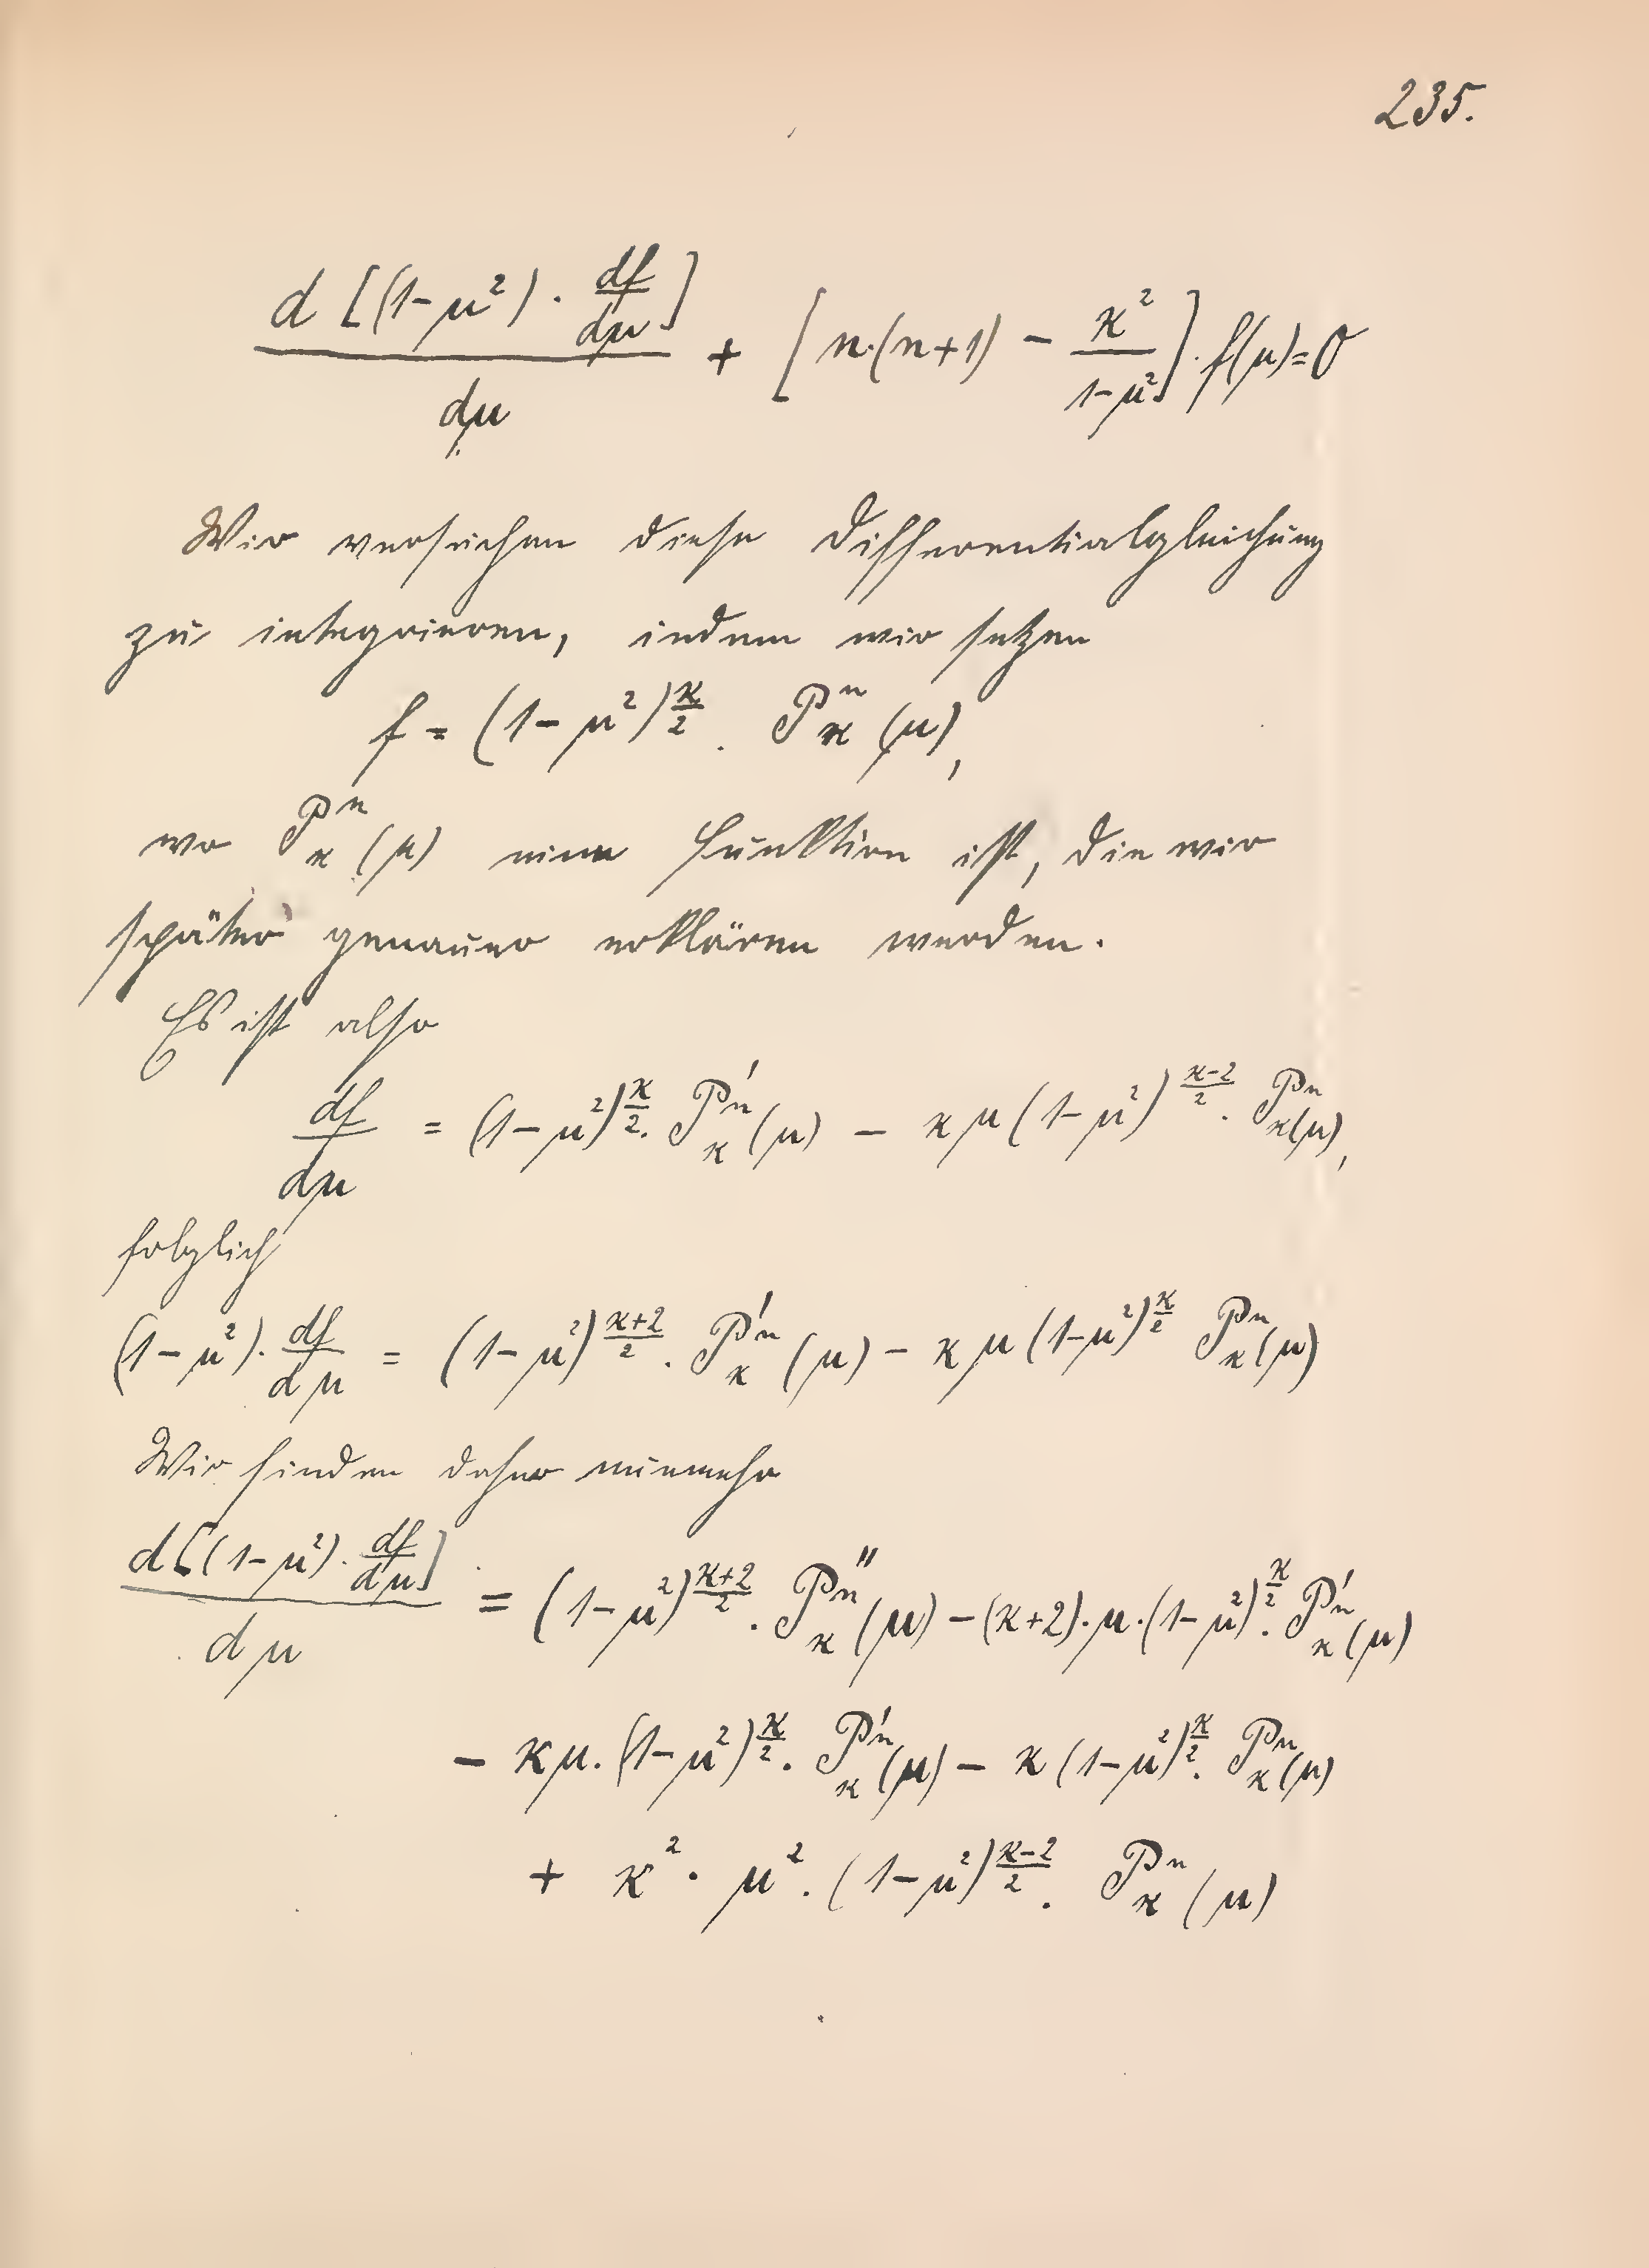 235.
$\frac{d\left[(1-\mu^2)\cdot\frac{df}{d\mu}\right]}{d\mu} + \left[n\cdot(n+1) - \frac{\kappa^2}{1-\mu^2}\right]\cdot f(\mu) = 0$
Wir versuchen diese Differentialgleichung
zu integrieren, indem wir setzen
$f = (1-\mu^2)^{\frac{\kappa}{2}} \cdot P^n_\kappa(\mu),$
wo $P^n_\kappa(\mu)$ eine Funktion ist, die wir
später genauer erklären werden.
Es ist also
$\frac{df}{d\mu} = (1-\mu^2)^{\frac{\kappa}{2}} \cdot P'^n_\kappa(\mu) - \kappa\mu(1-\mu^2)^{\frac{\kappa-2}{2}} \cdot P^n_\kappa(\mu),$
folglich
$(1-\mu^2)\cdot\frac{df}{d\mu} = (1-\mu^2)^{\frac{\kappa+2}{2}} \cdot P'^n_\kappa(\mu) - \kappa\mu(1-\mu^2)^{\frac{\kappa}{2}} P^n_\kappa(\mu)$
Wir finden daher nunmehr
$\frac{d\left[(1-\mu^2)\cdot\frac{df}{d\mu}\right]}{d\mu} = (1-\mu^2)^{\frac{\kappa+2}{2}} \cdot P''^n_\kappa(\mu) - (\kappa+2)\cdot\mu\cdot(1-\mu^2)^{\frac{\kappa}{2}} \cdot P'^n_\kappa(\mu)$
$- \kappa\mu\cdot(1-\mu^2)^{\frac{\kappa}{2}} \cdot P'^n_\kappa(\mu) - \kappa(1-\mu^2)^{\frac{\kappa}{2}} \cdot P^n_\kappa(\mu)$
$+ \kappa^2\cdot\mu^2\cdot(1-\mu^2)^{\frac{\kappa-2}{2}} \cdot P^n_\kappa(\mu)$